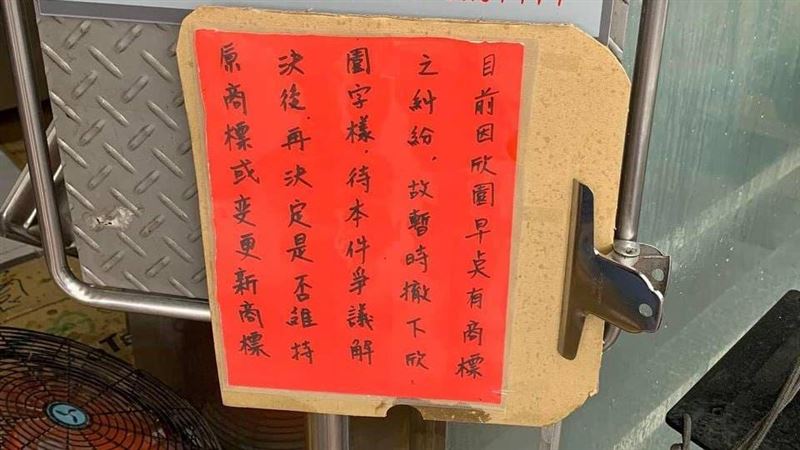 目前因欣園早点有商標
之糾紛，故暫時撤下欣
園字樣，待本件爭議解
決後，再決定是否維持
原商標或变更新商標